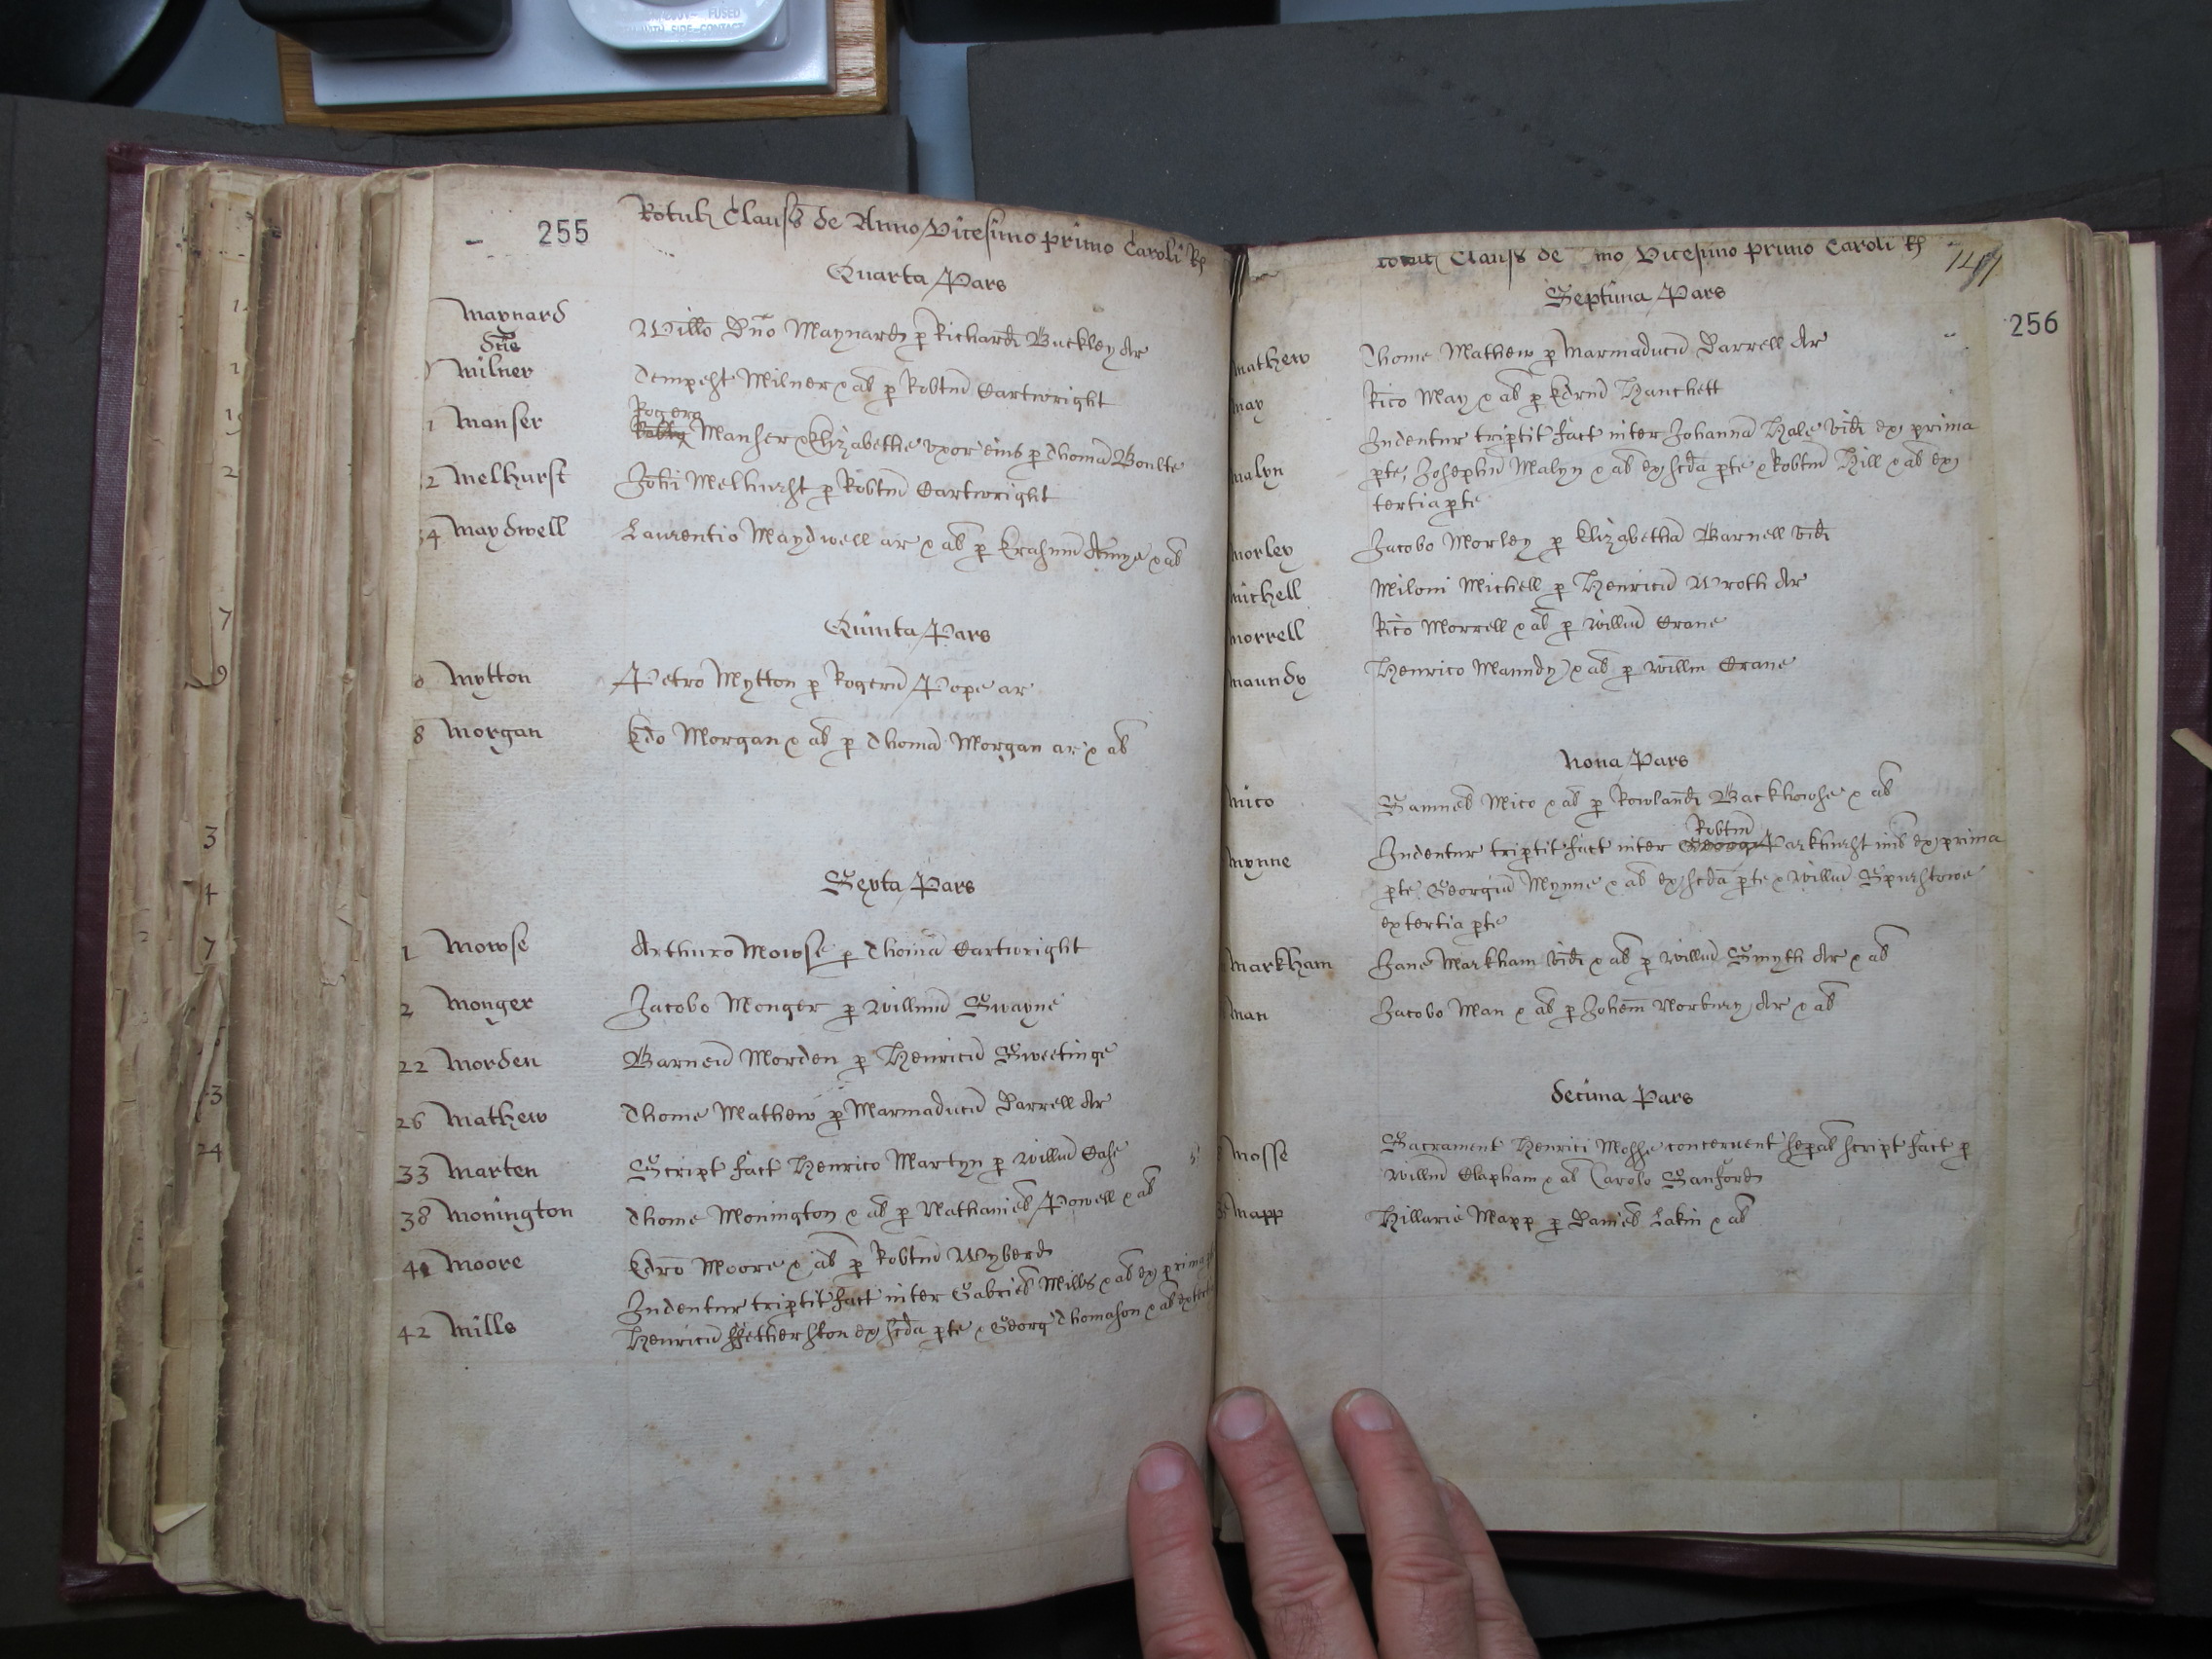 255
Rotuli Clauss de Anno Vicesimo primo Caroli R
Quarta Pars
Maynard Willo Dno Maynard p Richard Buckley Ar
Milner Tempest Milner & al p Robtm Cartwright
Rogero
1 Manser Manser & Elizabethe uxor eius p Thomam Boulte
2 Melhurst Johi Melhurst p Robtm Cartwright
34 Maydwell Laurentio Maydwell ar & al p Erasmm & al
Quinta Pars
Mytton Petro Mytton p Rogerum Pope ar
8 Morgan Edo Morgan & al p Thomam Morgan ar & al
Sexta Pars
1 Mowse Arthuro Mowse p Thomam Cartwright
2 Monger Jacobo Monger p Willmm Swayne
22 Morden Morden p Henricum Sweetinge
26 Mathew Thome Mathew p Marmaducum Darrell Ar
33 Marten Script fact Henrico Martyn p Willm Case
38 Monington Thome Monington & al p Nathaniel Powell & al
Moore Edro Moore & al p Robtm Wyberd
Indentur triptit fact inter Gabriel Mills & al ex prima
42 Mills Henricum ffetherston ex scda pte & Georg Thomason & al ex
Clauss de Vicesimo primo Caroli R
256
Septima Pars
Mathew Thome Mathew p Marmaducum Darrell Ar
May Rico May & al p Edrum Hanchett
Indentur triptit fact inter Johannam Hale vid ex prima
Malyn pte, Josephum Malyn & al ex scda pte & Robtm Hill & al ex
tertia pte
Morley Jacobo Morley p Elizabetham Barnell vid
Michell Miloni Michell p Henricum Wroth Ar
Morrell Rico Morrell & al p Willm Crane
Maundy Henrico Maundy & al p Willm Crane
Nona Pars
Mico Samuel Mico & al p Rowland Backhowse & al
Robtm
Indentur triptit fact inter Parkhurst mil ex prima
Mynne pte Georgium Mynne & al ex scda pte & Willm Spurstowe
ex tertia pte
Markham Jane Markham vid & al p Willm Smyth Ar & al
Man Jacobo Man & al p Johem Norbury Ar & al
Decima Pars
Mosse Sacrament Henrici Mosse concernent sepal script fact p
Willm Clapham & al Carolo Sanford
Mapp Hillarie Mapp p Daniel Lakin & al